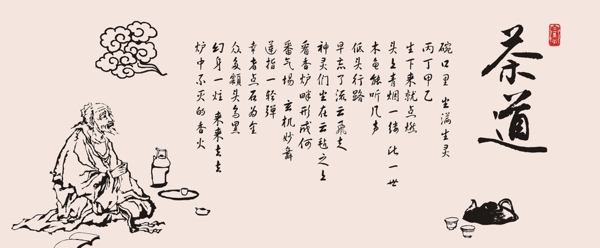 茶道
碗口里 坐满生灵
丙丁甲乙
生下来就点燃
头上青烟一缕 比一世
木鱼能听几声
低头行路
早忘了流云飞走
神灵们坐在云毯之上
看香炉畔形成何
番气场 玄机妙舞
莲指一轮弹
幸者点石为金
众多额头乌黑
幻身一炷 来来去去
炉中不灭的香火